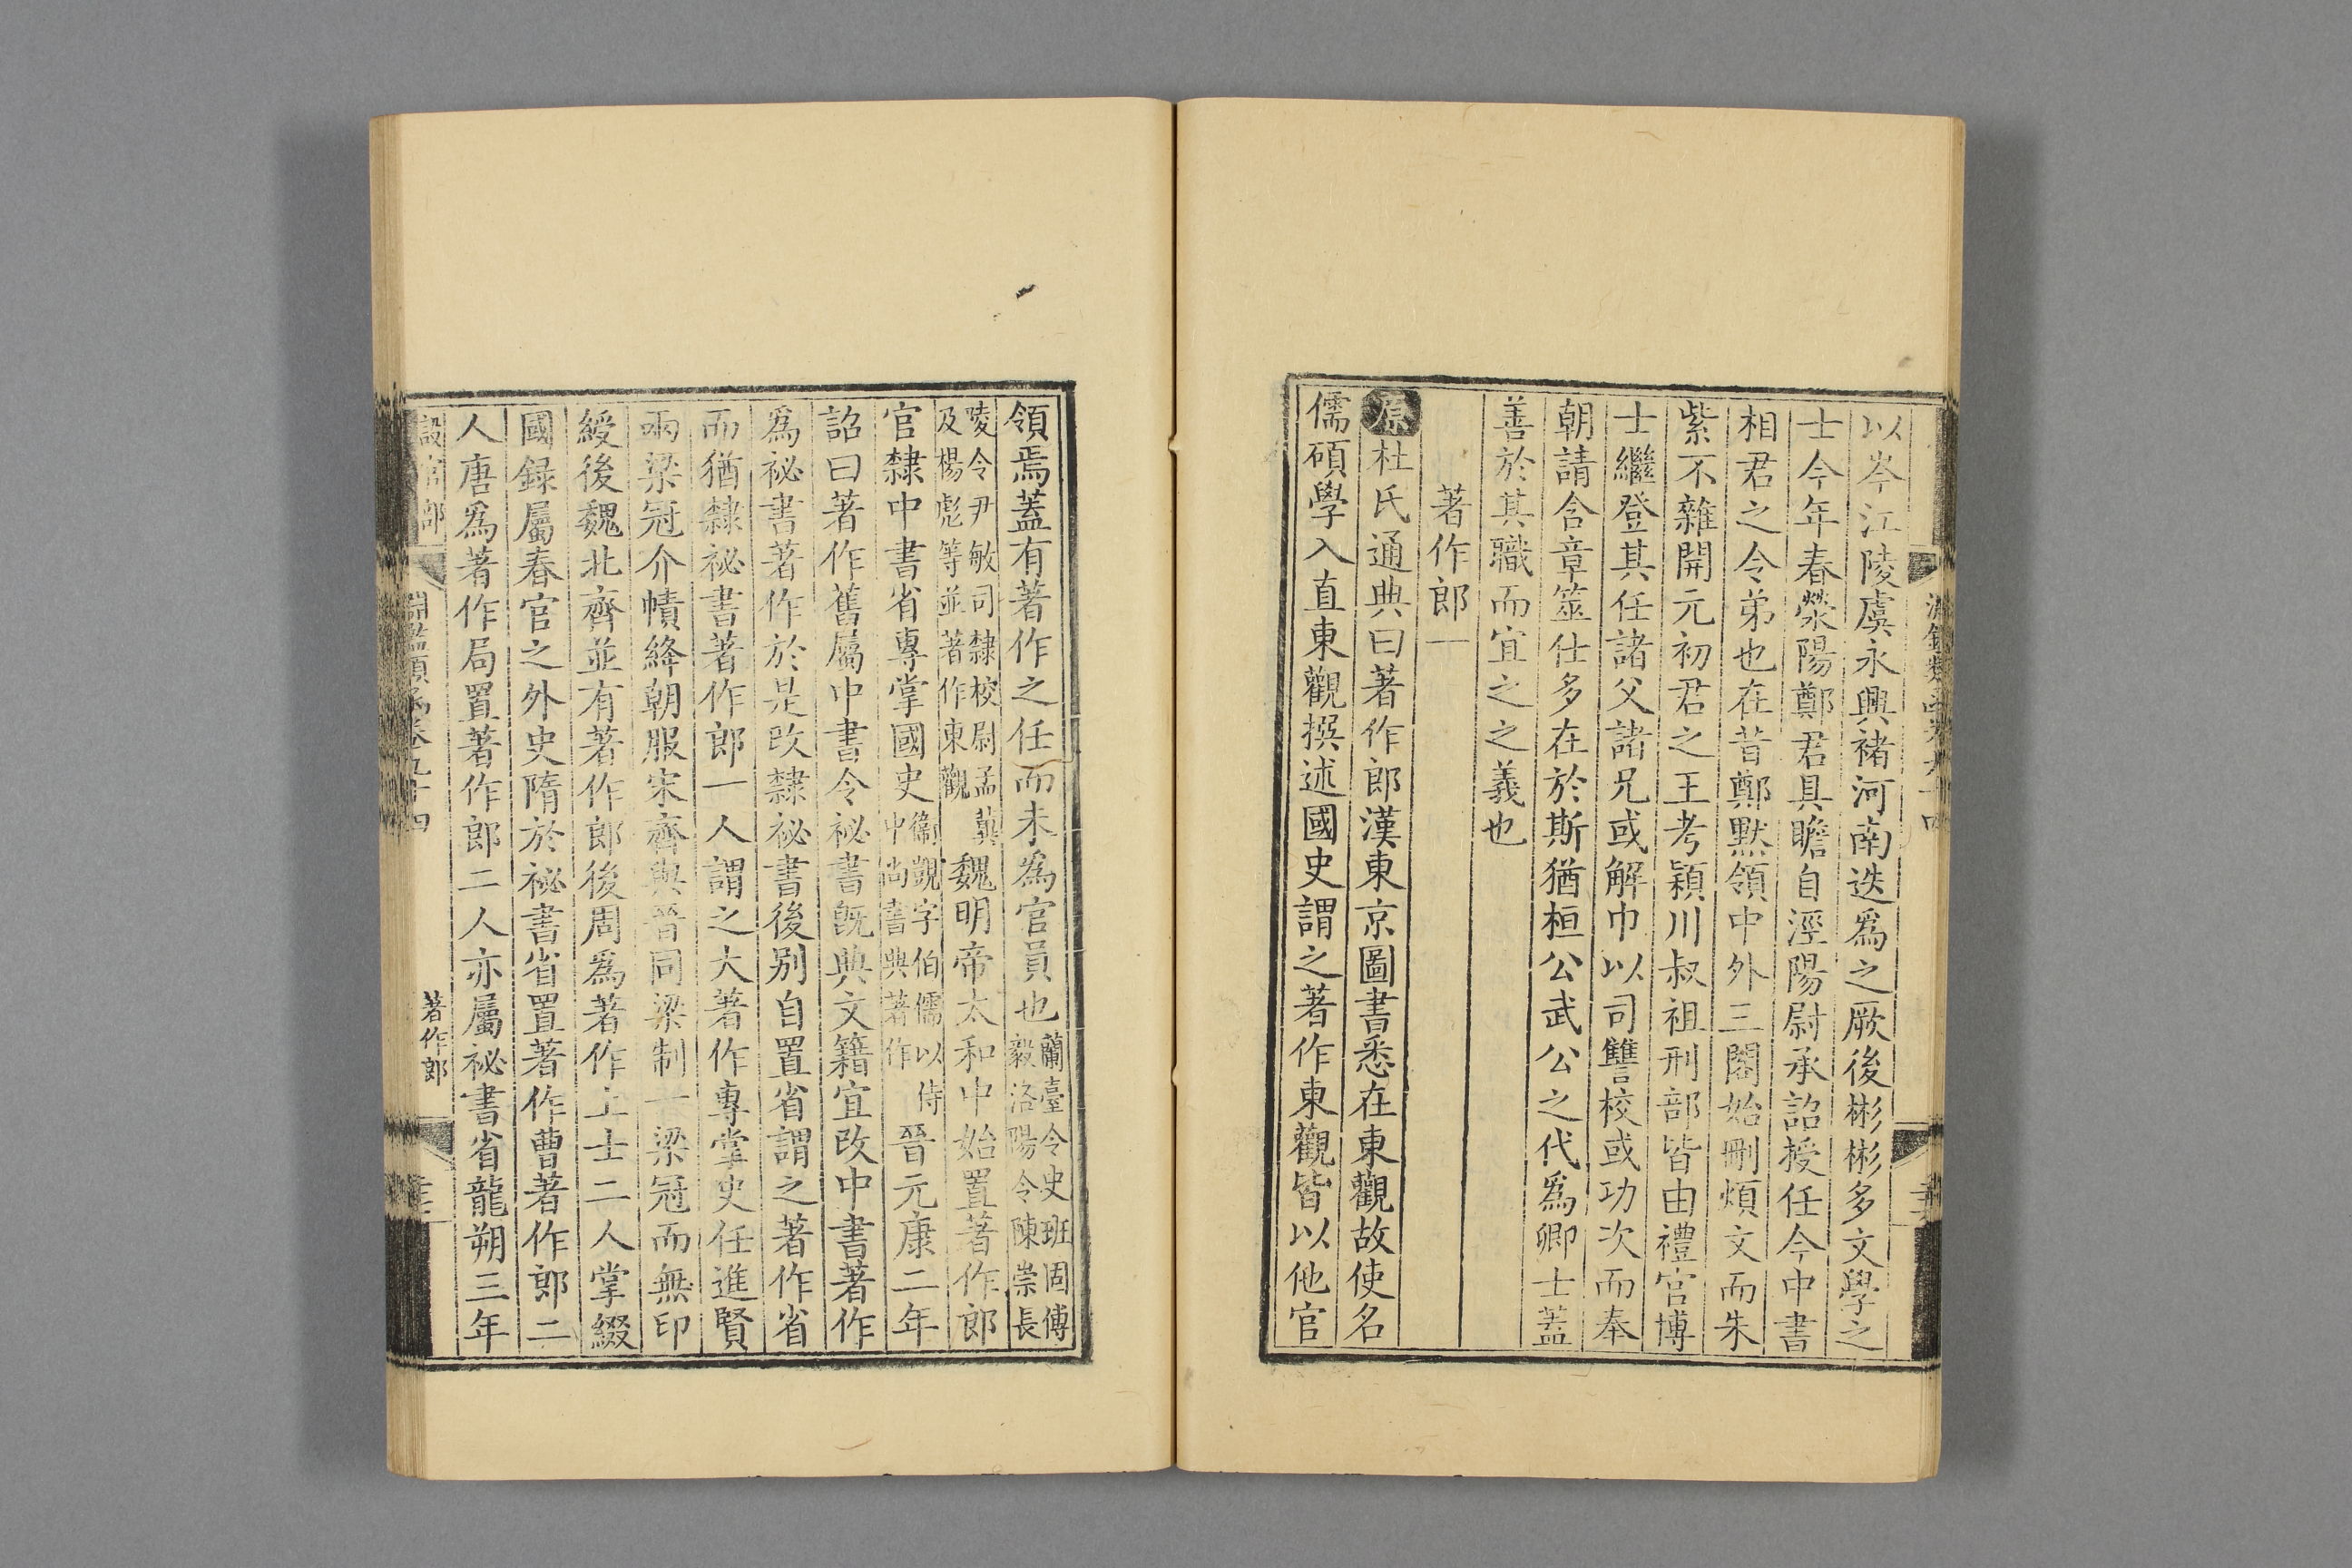 以岑江陵虞永興褚河南迭爲之厥後彬彬多文學之
士今年春滎陽鄭君具瞻自涇陽尉承詔授任今中書
相君之令弟也在昔鄭默領中外三閣始刪煩文而朱
紫不雜開元初君之王考潁川叔祖刑部皆由禮官博
士繼登其任諸父諸兄或解巾以司讐校或功次而奉
朝請含章筮仕多在於斯猶桓公武公之代爲卿士蓋
善於其職而宜之之義也
著作郎一
原杜氏通典曰著作郎漢東京圖書悉在東觀故使名
儒碩學入直東觀撰述國史謂之著作東觀皆以他官
領焉蓋有著作之任而未爲官員也蘭臺令史班固傅
毅洛陽令陳崇長
陵令尹敏司隸校尉孟冀
及楊彪等並著作東觀魏明帝太和中始置著作郎
官隸中書省專掌國史衞覬字伯儒以侍
中尚書典著作晉元康二年
詔曰著作舊屬中書令祕書旣典文籍宜改中書著作
爲祕書著作於是改隸祕書後别自置省謂之著作省
而猶隸祕書著作郎一人謂之大著作專掌史任進賢
兩梁冠介幘絳朝服宋齊與晉同梁制一梁冠而無印
綬後魏北齊並有著作郎後周爲著作上士二人掌綴
國録屬春官之外史隋於祕書省置著作曹著作郎二
人唐爲著作局置著作郎二人亦屬祕書省龍朔三年
設官部
淵鑑類函卷九十四
著作郎